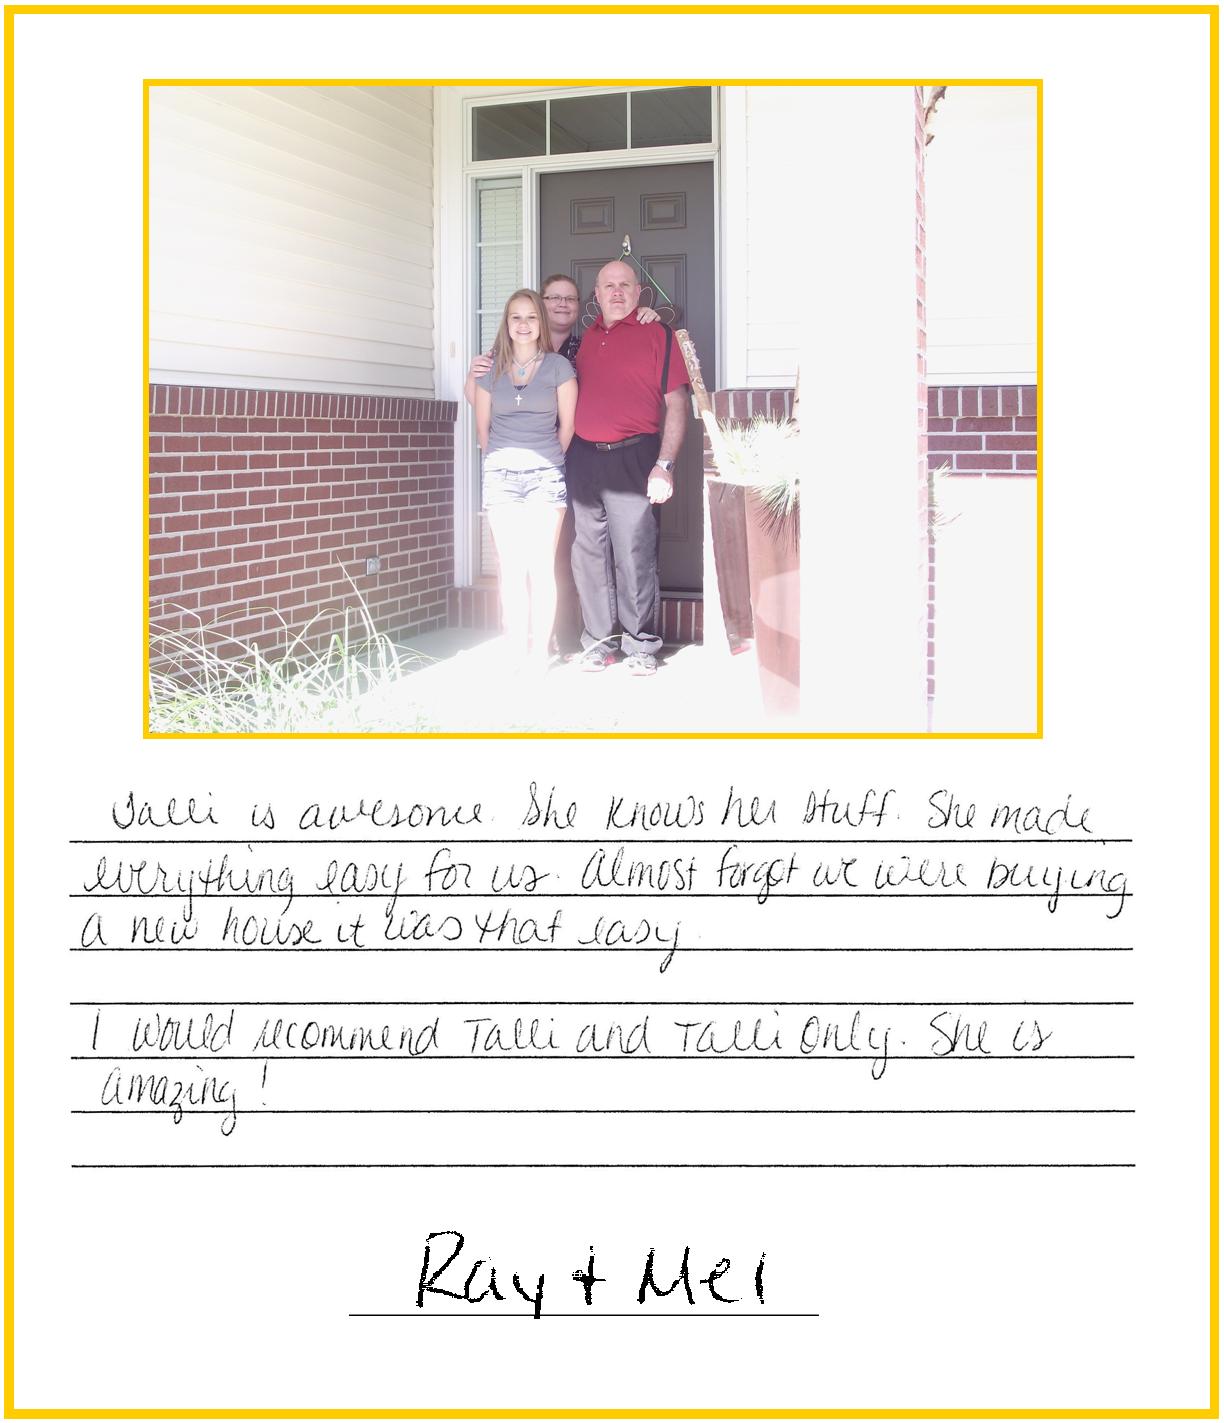 Talli is awesome. She knows her stuff. She made
everything easy for us. Almost forgot we were buying
a new house it was that easy.
I would recommend Talli and Talli only. She is
amazing!
Ray + Mel